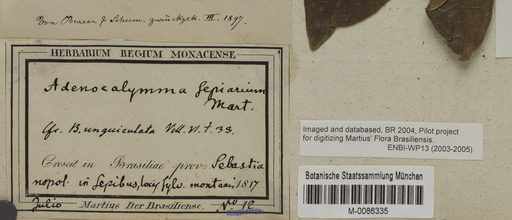 Von Bureau & Schum. zurückgek. III. 1897.
HERBARIUM REGIUM MONACENSE
Adenocalymma sepiarium
Mart.
Cfr. B. unguiculata Vell. VI. t. 33.
Crescit in Brasiliae prov: Sebastia
nopol. in sepibus, sylv. montan. 1817
Julio Martius Iter Brasiliense. No 18
Imaged and databased, BR 2004, Pilot project
for digitizing Martius' Flora Brasiliensis.
ENBI-WP13 (2003-2005)
Botanische Staatssammlung München
M-0086335